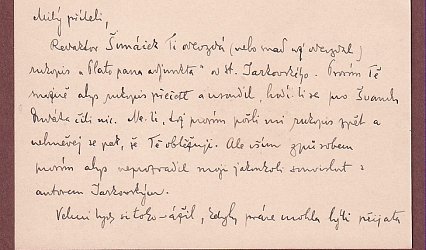 Milý příteli,
Redaktor Šimáček Ti odevzdá (nebo snad už odevzdal)
rukopis „Plato pana adjunkta" od st. Jarkovského. Prosím Tě
snažně abys rukopis přečetl a usoudil, hodí-li se pro Švandu
čili nic. Ne-li, tož prosím pošli mi rukopis zpět a
nehněvej se pak, že Tě obtěžuji. Ale vším způsobem
prosím abys neprozradil moji jakoukoli souvislost s
autorem Jarkovským.
Velmi bych si toho vážil, kdyby práce mohla býti přijata